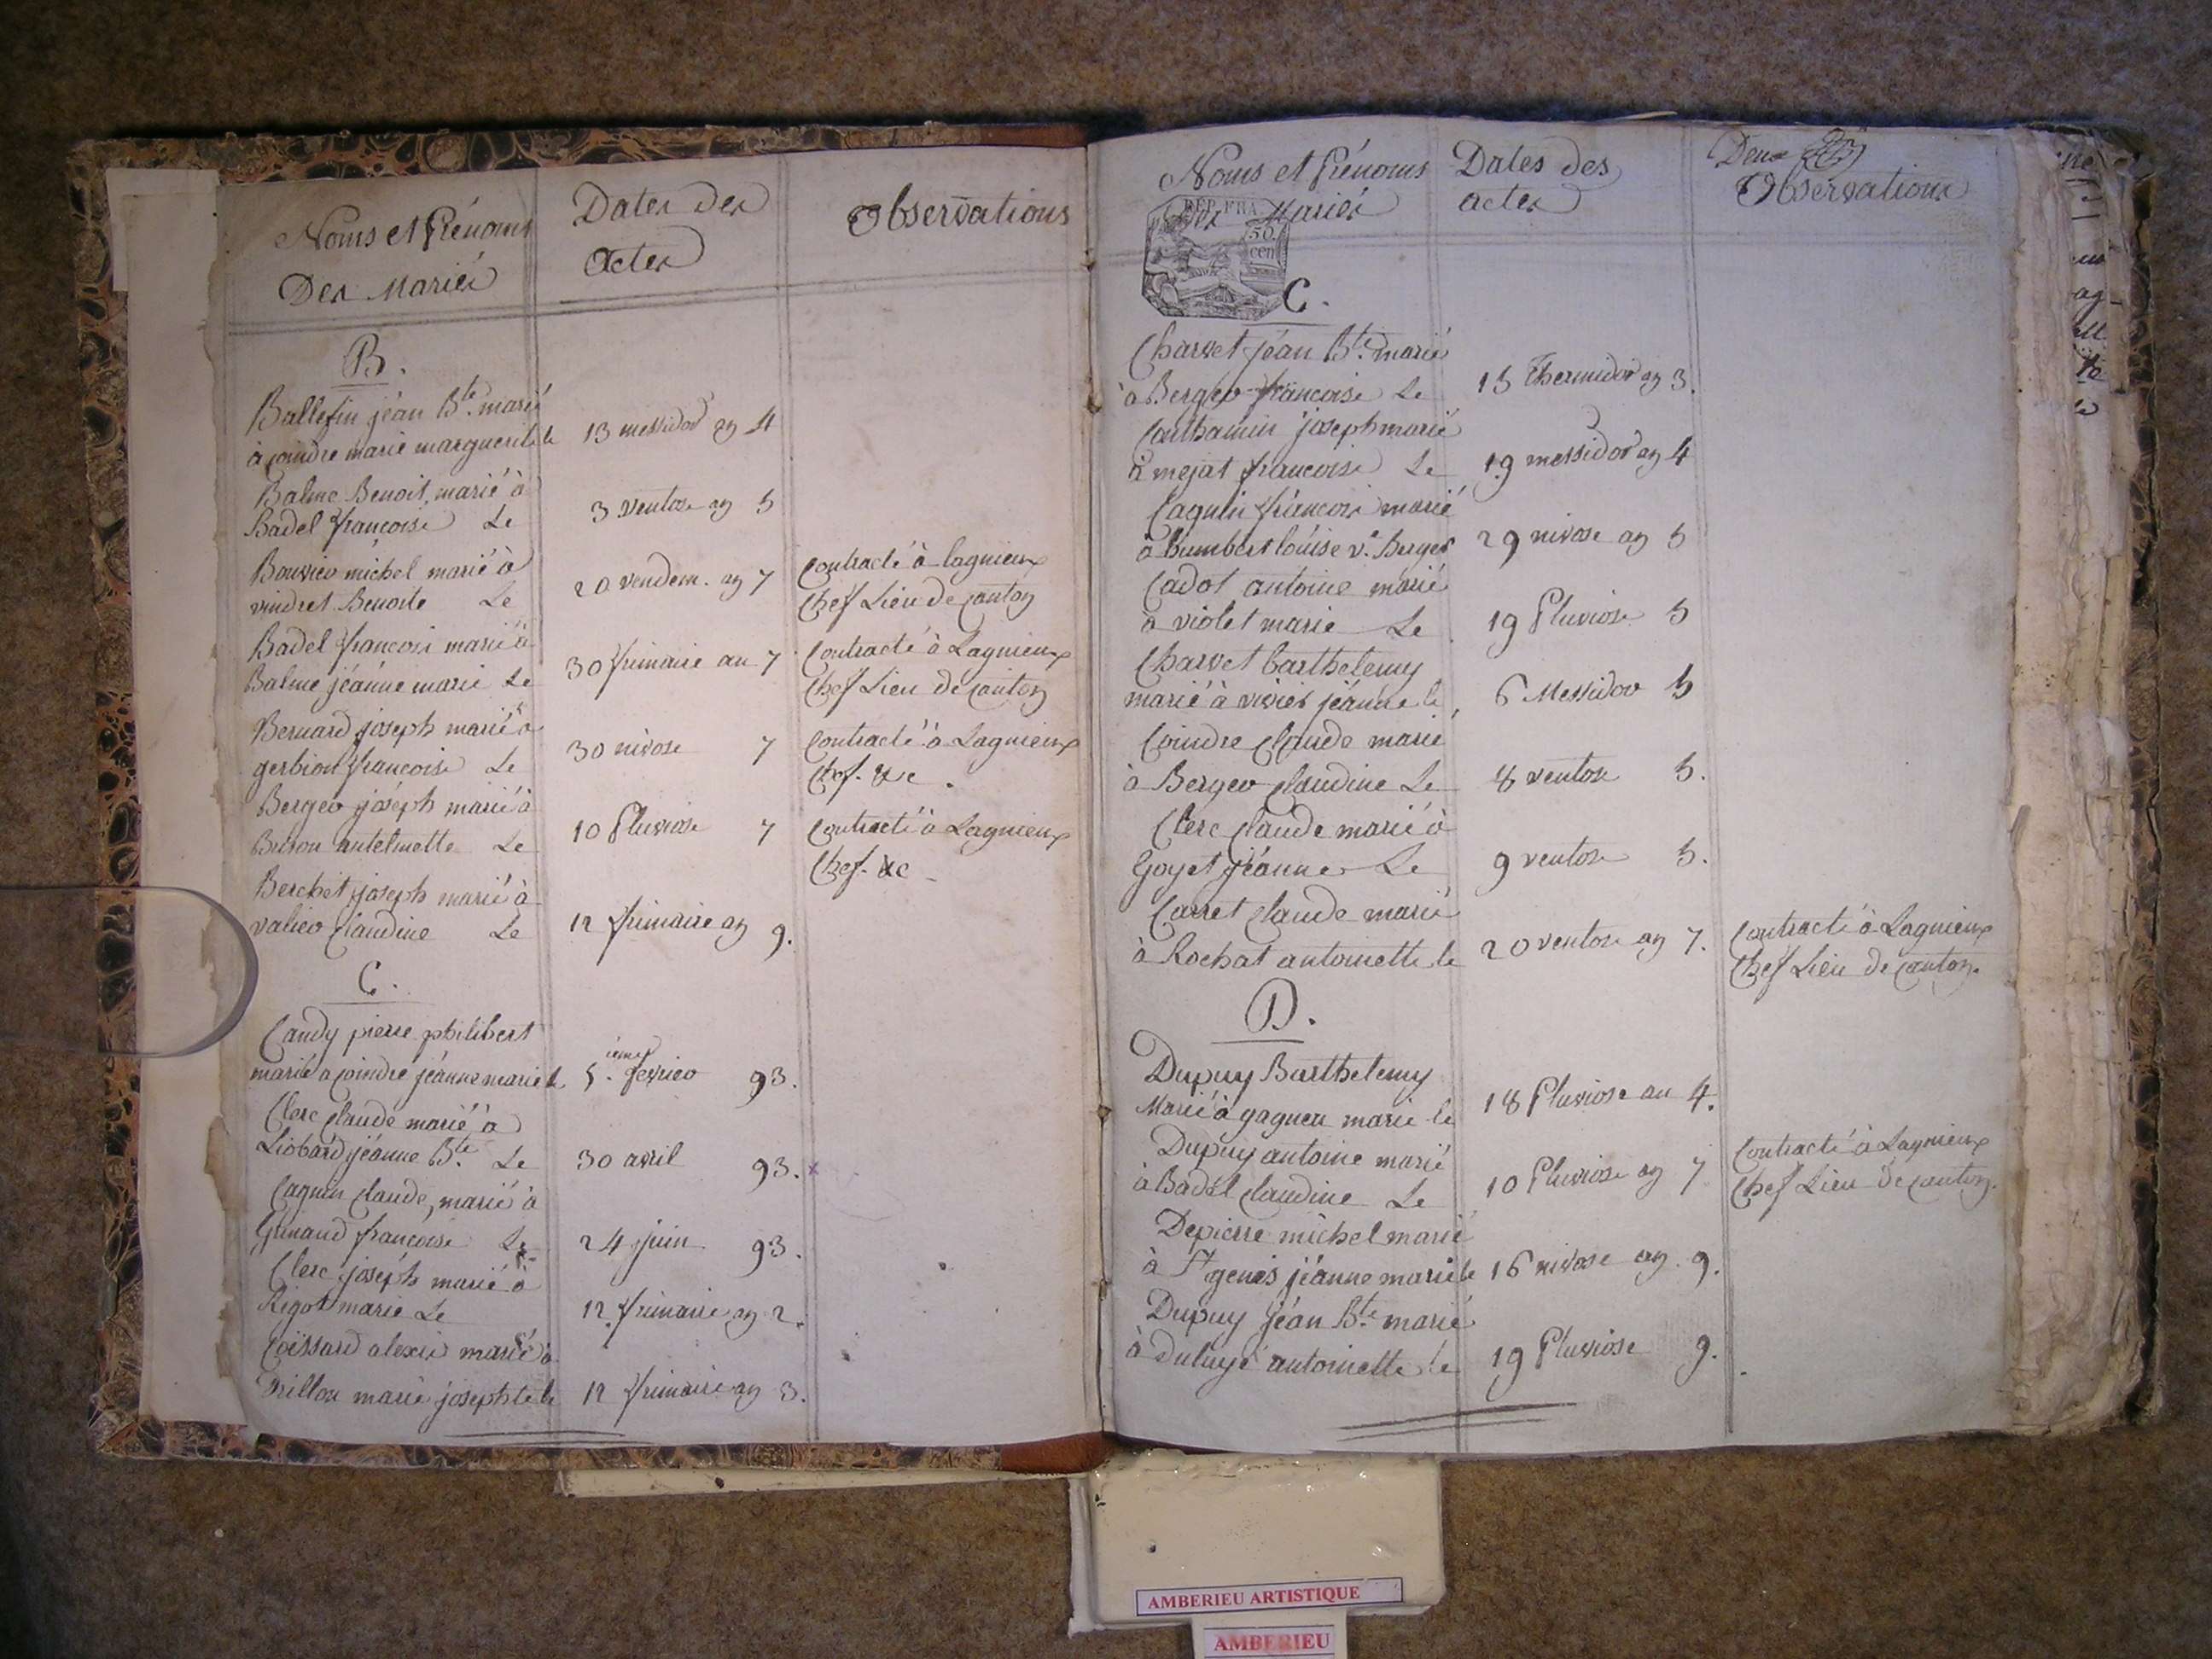 Noms et Prénoms
Des Mariés
Dates des
Actes
Observations
B.
Ballefin jéan Bte. marié
à coindre marie marguerite le
13 messidor an 4
Balme Benoit, marié à
Badel françoise Le
3 ventose an 5
Bouvier michel marié à
vindret Benoite Le
20 vendem. an 7
Contracté à lagnieux
Chef Lieu de canton
Badel françois marié à
Balme jéanne marie Le
30 frimaire an 7
Contracté à Lagnieux
Chef Lieu de canton
Bernard joseph marié à
gerbion françoise Le
30 nivose 7
Contracté à Lagnieux
Chef. &c.
Berger joséph marié à
antelmette Le
10 Pluviose 7
Contracté à Lagnieux
Chef. &c
Berchet joseph marié à
valier Claudine Le
12 frimaire an 9.
C.
Candy pierre philibert
marié a coindre jéanne marie le
5.ieme fevrier 93.
Clerc Claude marié à
Liobard jéanne Bte. Le
30 avril 93. x
Cagnin Claude, marié à
Gunand françoise Le
24 juin 93.
Clerc joséph marié à
Rigot marie Le
12 frimaire an 2.
Coissard alexis marié à
Trillon marie josephte le
12 frimaire an 3.
Noms et Prénoms
des Mariés
Dates des
actes
Deux
Observations
REP. FRA.
50
cen
C.
Charvet jéan Bte. marié
à Berger françoise Le
15 Thermidor an 3.
Conthamin joseph marié
à mejat françoise Le
19 messidor an 4
Cagnin françois marié
à humbert louise ve. Berger
29 nivose an 5
Cadot antoine marié
à violet marie Le
19 Pluviose 5
Charvet barthelemy
marié à vivier jéanne le
6 Messidor 5
Coindre Claude marié
à Berger Claudine Le
8 ventose 5.
Clerc Claude marié à
Goyet jéanne Le
9 ventose 5.
Carret Claude marié
à Rochat antoinette le
20 ventose an 7.
Contracté à Lagnieux
Chef Lieu de canton.
D.
Dupuy Barthelemy
Marié à gagneu marie le
18 Pluviose an 4.
Dupuy antoine marié
à Badel Claudine Le
10 Pluviose an 7
Contracté à Lagnieux
Chef Lieu de canton.
Depierre michel marié
à St genis jéanne marie le
16 nivose an 9.
Dupuy jéan Bte. marié
à duluyé antoinette le
19 Pluviose 9.
AMBERIEU ARTISTIQUE
AMBERIEU